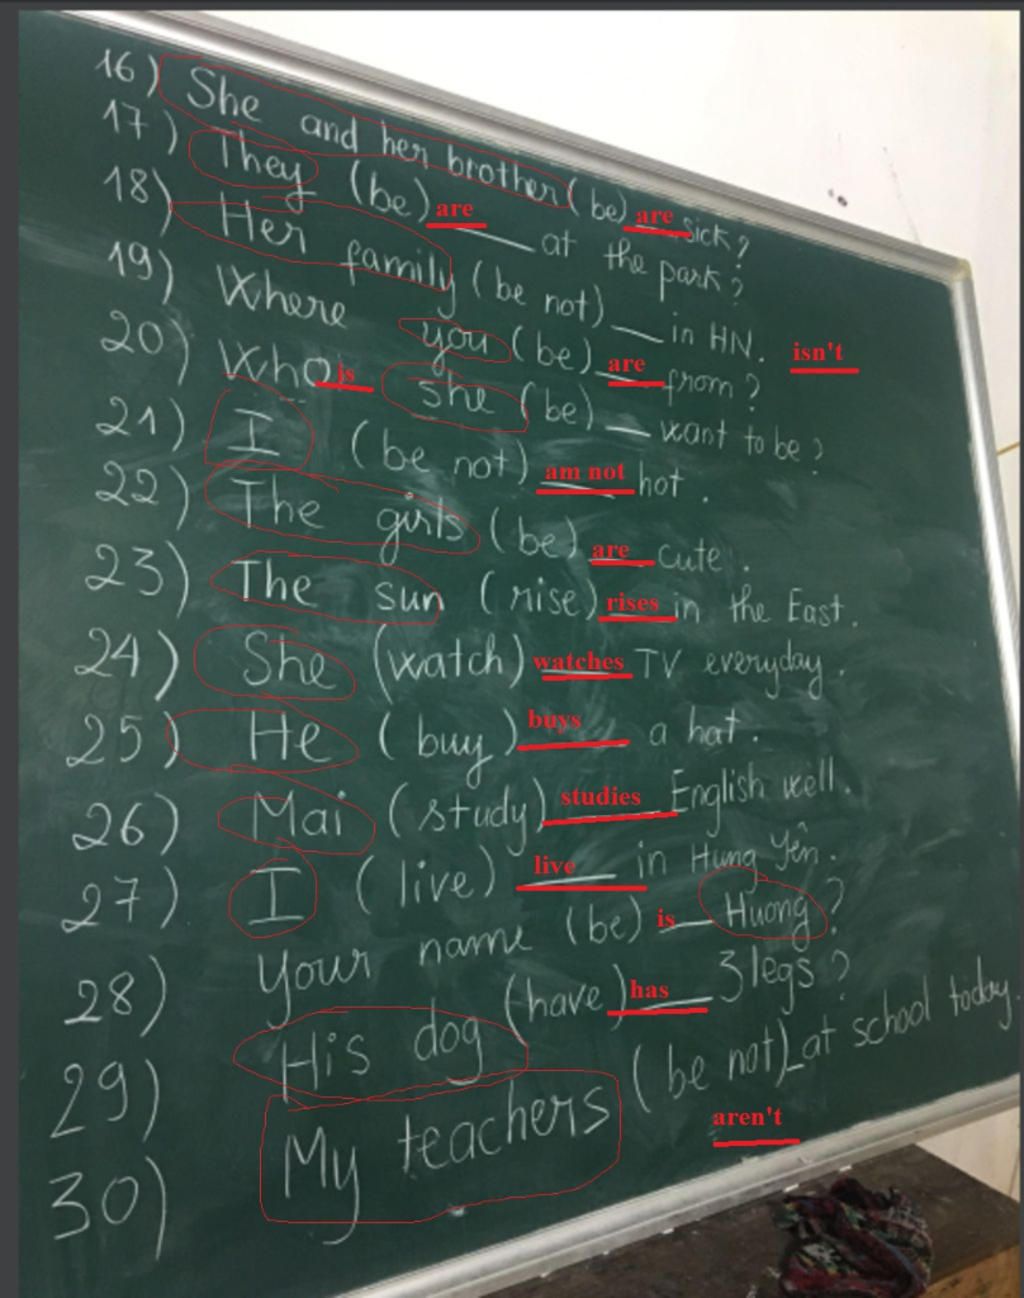 16) She and her brother (be) are sick?
17) They (be) are at the park?
18) Her family (be not) __ in HN. isn't
19) Where you (be) are from?
20) Who is she (be) __ want to be?
21) I (be not) am not hot.
22) The girls (be) are cute.
23) The sun (rise) rises in the East.
24) She (watch) watches TV everyday.
25) He (buy) buys a hat.
26) Mai (study) studies English well.
27) I (live) live in Hưng Yên.
28) Your name (be) is Huong?
29) His dog (have) has 3 legs?
30) My teachers (be not) __ at school today. aren't